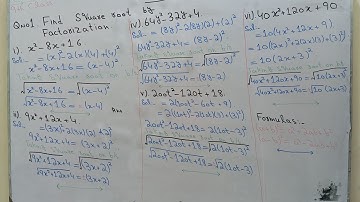 Qno1 Find Square root by
Factorization
i) x²-8x+16
Sol:- = (x)²-2(x)(4)+(4)²
x²-8x+16 = (x-4)²
√x²-8x+16 = √(x-4)²
√x²-8x+16 = ·(x-4)
Ans
ii) 9x²+12x+4
= (3x)²+2(3x)(2)+2²
9x²+12x+4 = (3x+2)²
√9x²+12x+4 = √(3x+2)²
√9x²+12x+4 = (3x+2)
iv) 64y²-32y+4
Sol:- = (8y)²-2(8y)(2)+(2)²
64y²-32y+4 = (8y-2)²
√64y²-32y+4 = √(8y-2)²
√64y²-32y+4 = (8y-2)
v) 200t²-120t+18
Sol:- = 2(100t²-60t+9)
= 2(10t)²-2(10t)(3)+(3)²
200t²-120t+18 = 2(10t-3)²
√200t²-120t+18 = √2(10t-3)²
√200t²-120t+18 = √2(10t-3)
vi) 40x²+120x+90
Sol:-
= 10(4x²+12x+9)
= 10(2x)²+2(2x)(3)+(3)²
= 10(2x+3)²
√40x²+120x+90 = √10(2x+3)²
√40x²+120x+90 = √10(2x+3)
Formulas:-